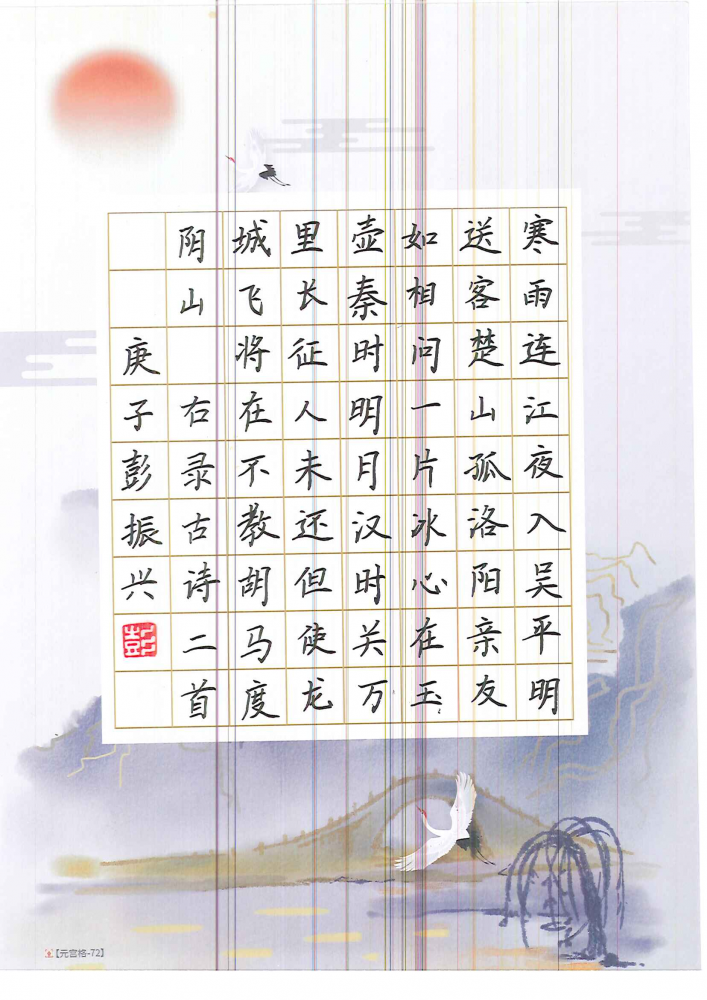 寒雨连江夜入吴平明
送客楚山孤洛阳亲友
如相问一片冰心在玉
壶秦时明月汉时关万
里长征人未还但使龙
城飞将在不教胡马度
阴山 右录古诗二首
庚子彭振兴
彭
【元宫格-72】